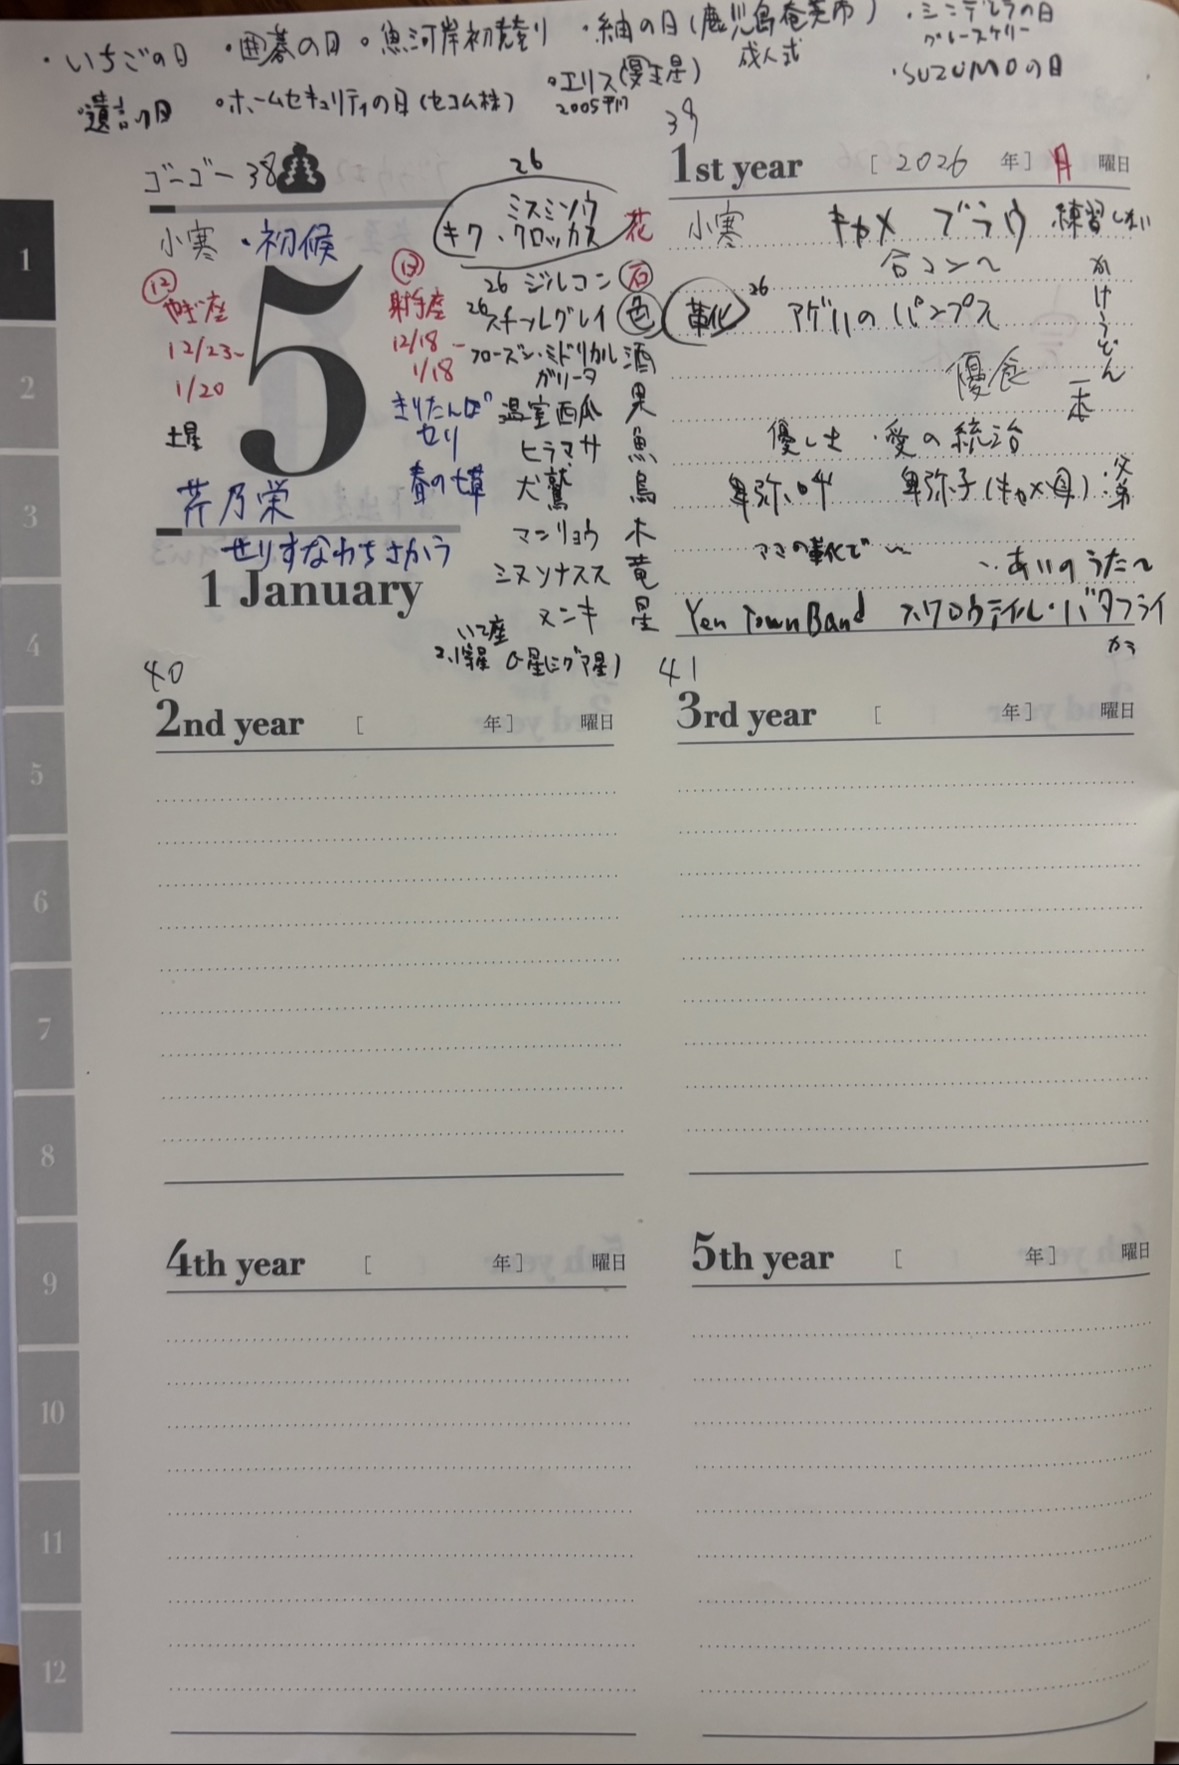 ・いちごの日 ・囲碁の日 ・魚河岸初売り ・紬の日(鹿児島奄美市) ・シンデレラの日
グレースケリー
成人式
・遺言の日 ・ホームセキュリティの日(セコム株) ・エリス(冥王星) ・SUZUMOの日
2005年
39
ゴーゴー 38
26
1st year [2026 年] 月 曜日
小寒・初候
ミスミソウ
キク・クロッカス 花
小寒 キャメ ブラウ 練習しない
合コン〜
⑫ やぎ座
12/23〜
1/20
土星
5
⑬ 射手座
12/18〜
1/18
きりたんぽ
セリ
春の七草
26 ジルコン 石
26 スチールグレイ 色
フローズン・ミドリカル
ガリータ 酒
温室西瓜 果
ヒラマサ 魚
犬鷲 鳥
マンリョウ 木
ミヌソナスス 竜
ヌンキ 星
いて座
2.1等星 σ星(シグマ星)
芹乃栄
せりすなわちさかう
1 January
靴 26 アゲハのパンプス
かけうどん
一本
優食
優しさ・愛の統治
卑弥呼 卑弥子(キャメ母)・父
弟
ママの靴で〜
・・あいのうた〜
Yen Town Band スワロウテイル・バタフライ
から
40
2nd year [ 年] 曜日
41
3rd year [ 年] 曜日
4th year [ 年] 曜日
5th year [ 年] 曜日
1
2
3
4
5
6
7
8
9
10
11
12